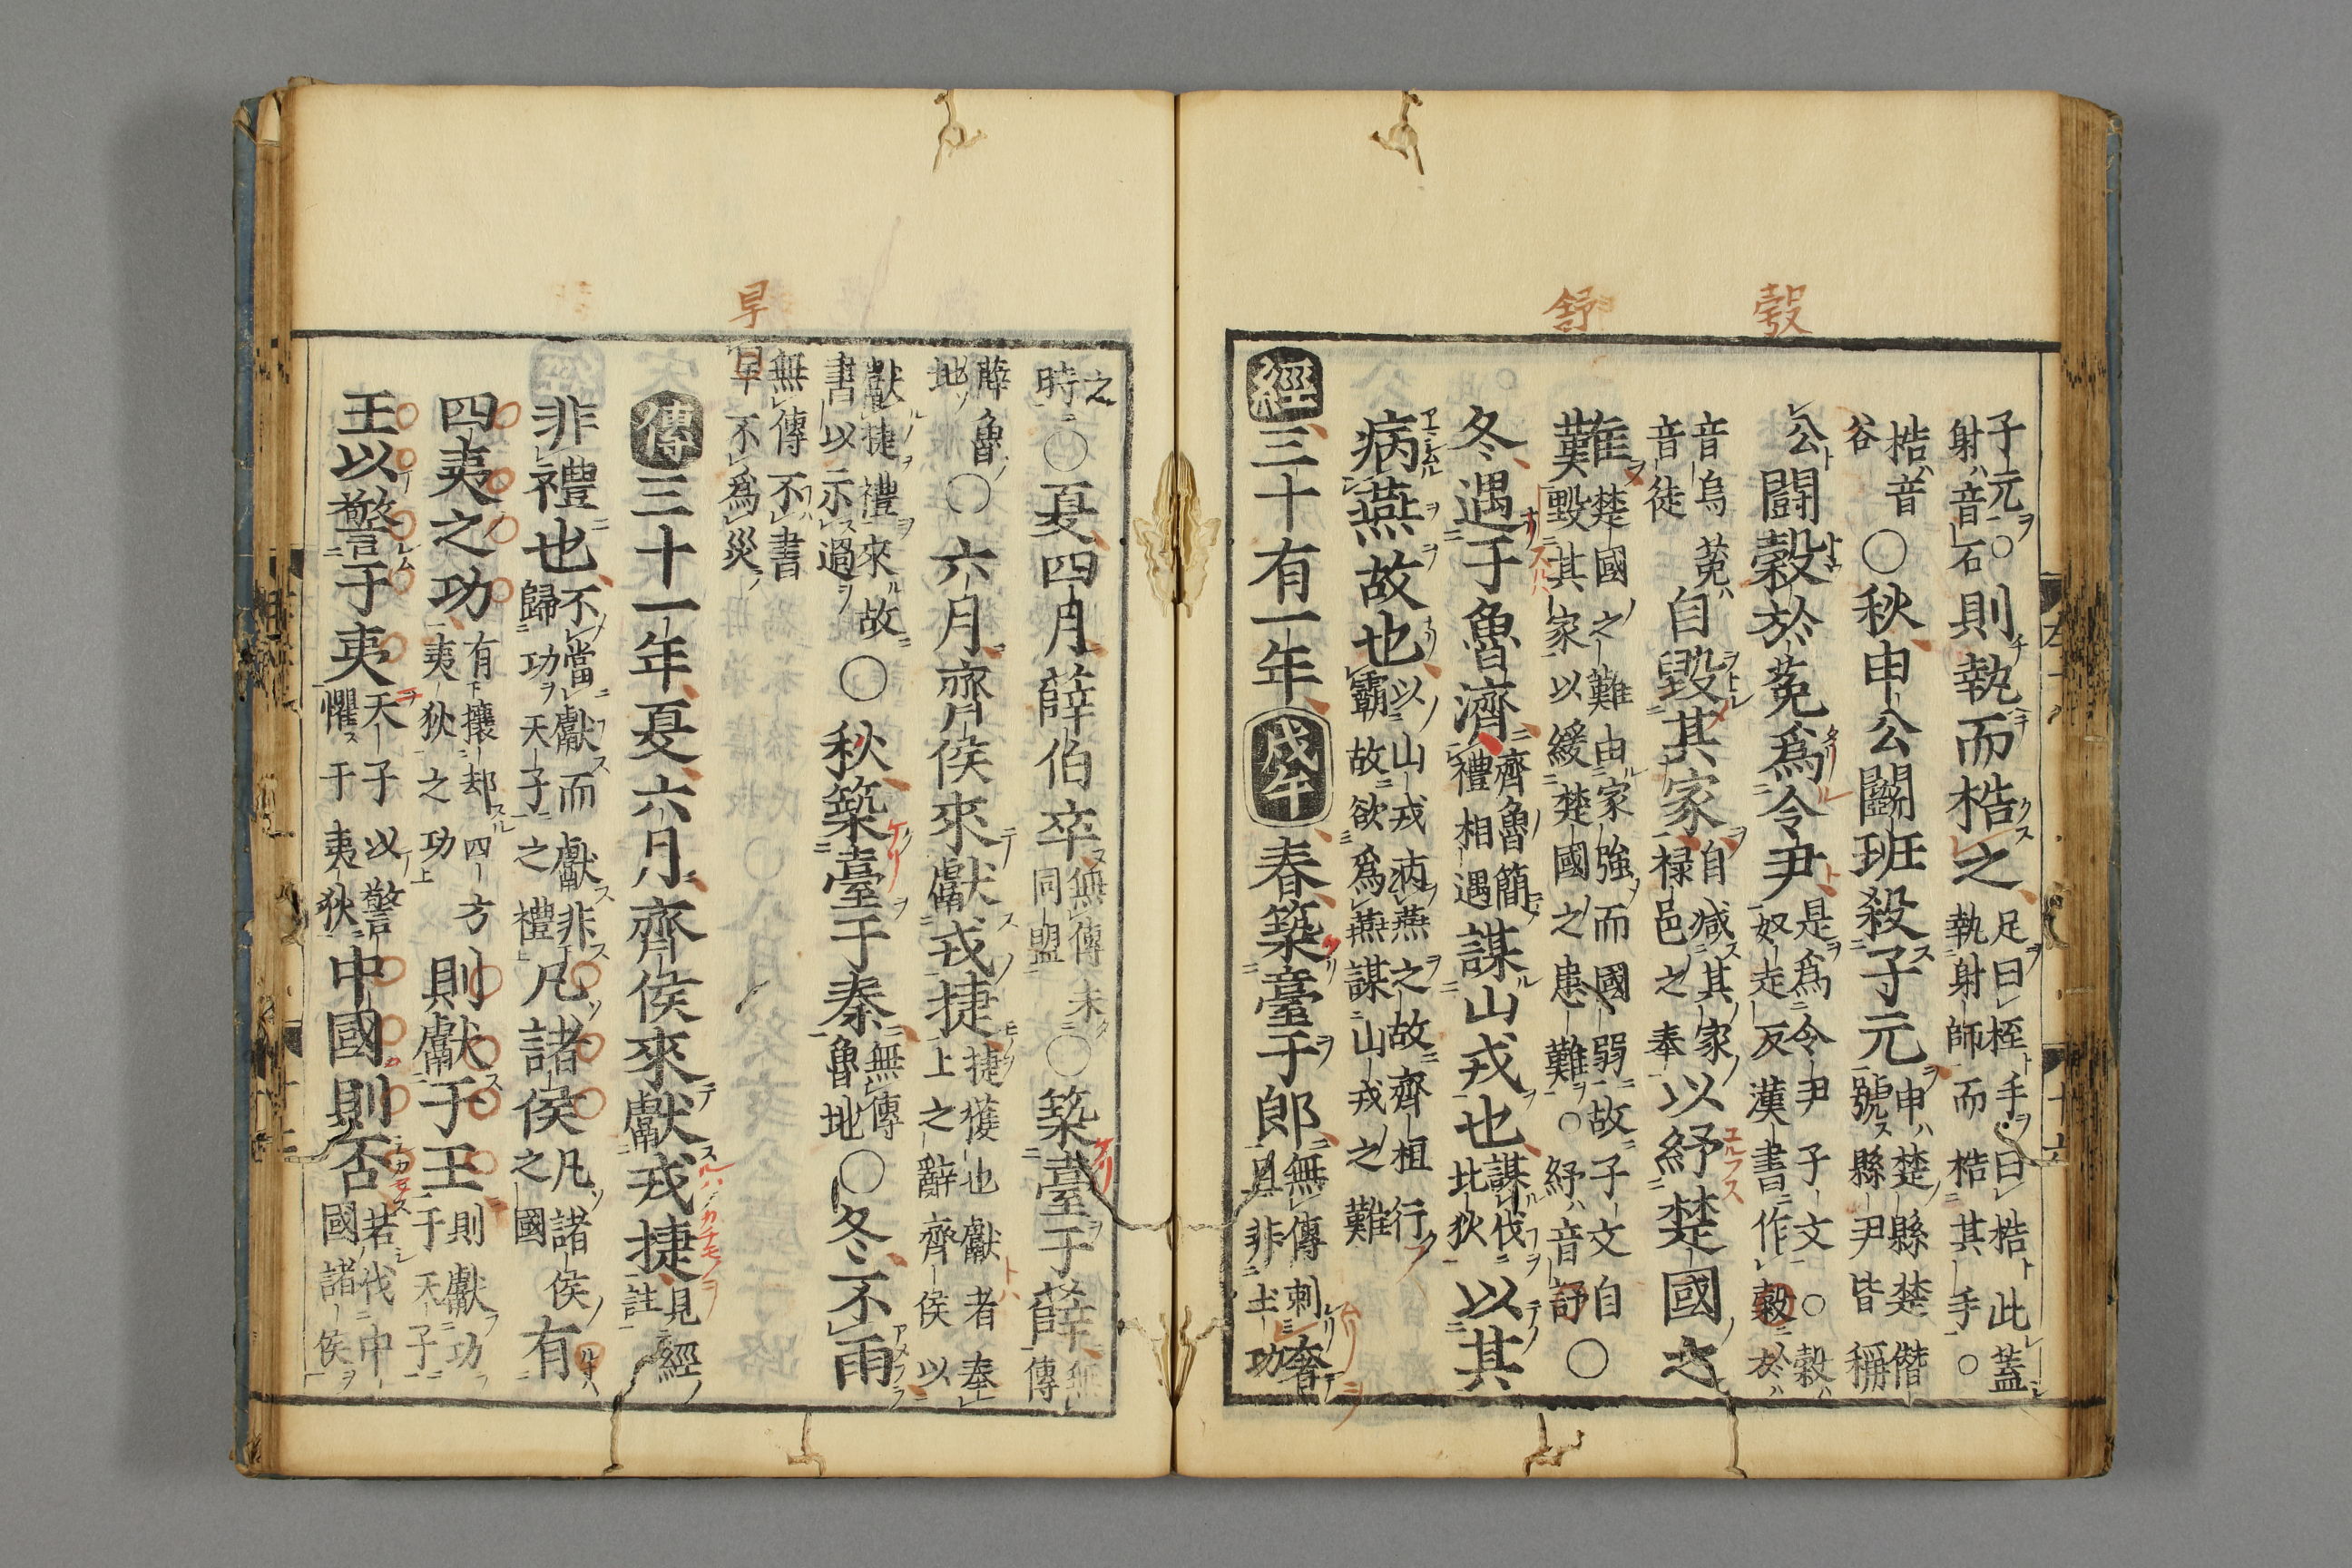 穀
舒
子元○射音石則執而梏之足曰桎手曰梏此蓋執射師而梏其手○
梏音谷○秋申公鬬班殺子元申楚縣楚僭號縣尹皆稱
公鬭穀於菟爲令尹是爲令尹子文○穀奴走反漢書作穀於
音烏菟音徒自毀其家自减其家禄邑之奉以紓楚國之
難楚國之難由家強而國弱故子文自毀其家以緩楚國之患難○紓音舒○
冬遇于魯濟齊魯簡禮相遇謀山戎也謀伐北狄以其
病燕故也以山戎病燕之故齊桓行霸故欲爲燕謀山戎之難
經三十有一年戊午春築臺于郎無傳刺奢且非土功
旱
之時○夏四月薛伯卒無傳未同盟○築臺于薛無傳
薛魯地○六月齊侯來獻戎捷捷獲也獻者奉上之辭齊侯以
獻捷禮來故書以示過○秋築臺于秦無傳魯地○冬不雨
無傳不書旱不爲災
傳三十一年夏六月齊侯來獻戎捷見經註
非禮也不當獻而獻非歸功天子之禮凡諸侯凡諸侯之國有
四夷之功有攘却四方夷狄之功則獻于王則獻功于天子
王以警于夷天子以警懼于夷狄中國則否若伐中國諸侯